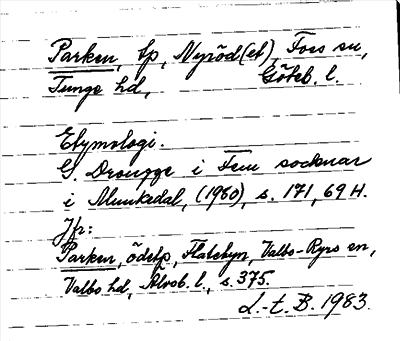 Parken, tp, Nyröd(et), Foss sn,
Tunge hd, Göteb. l.
Etymologi.
G. Drougge i Fem socknar
i Munkedal, (1960), s. 171, 69 H.
Jfr:
Parken, ödetp, Flatebyn, Valbo-Ryrs sn,
Valbo hd, Älvsb. l., s. 375.
L.-t. B. 1983.